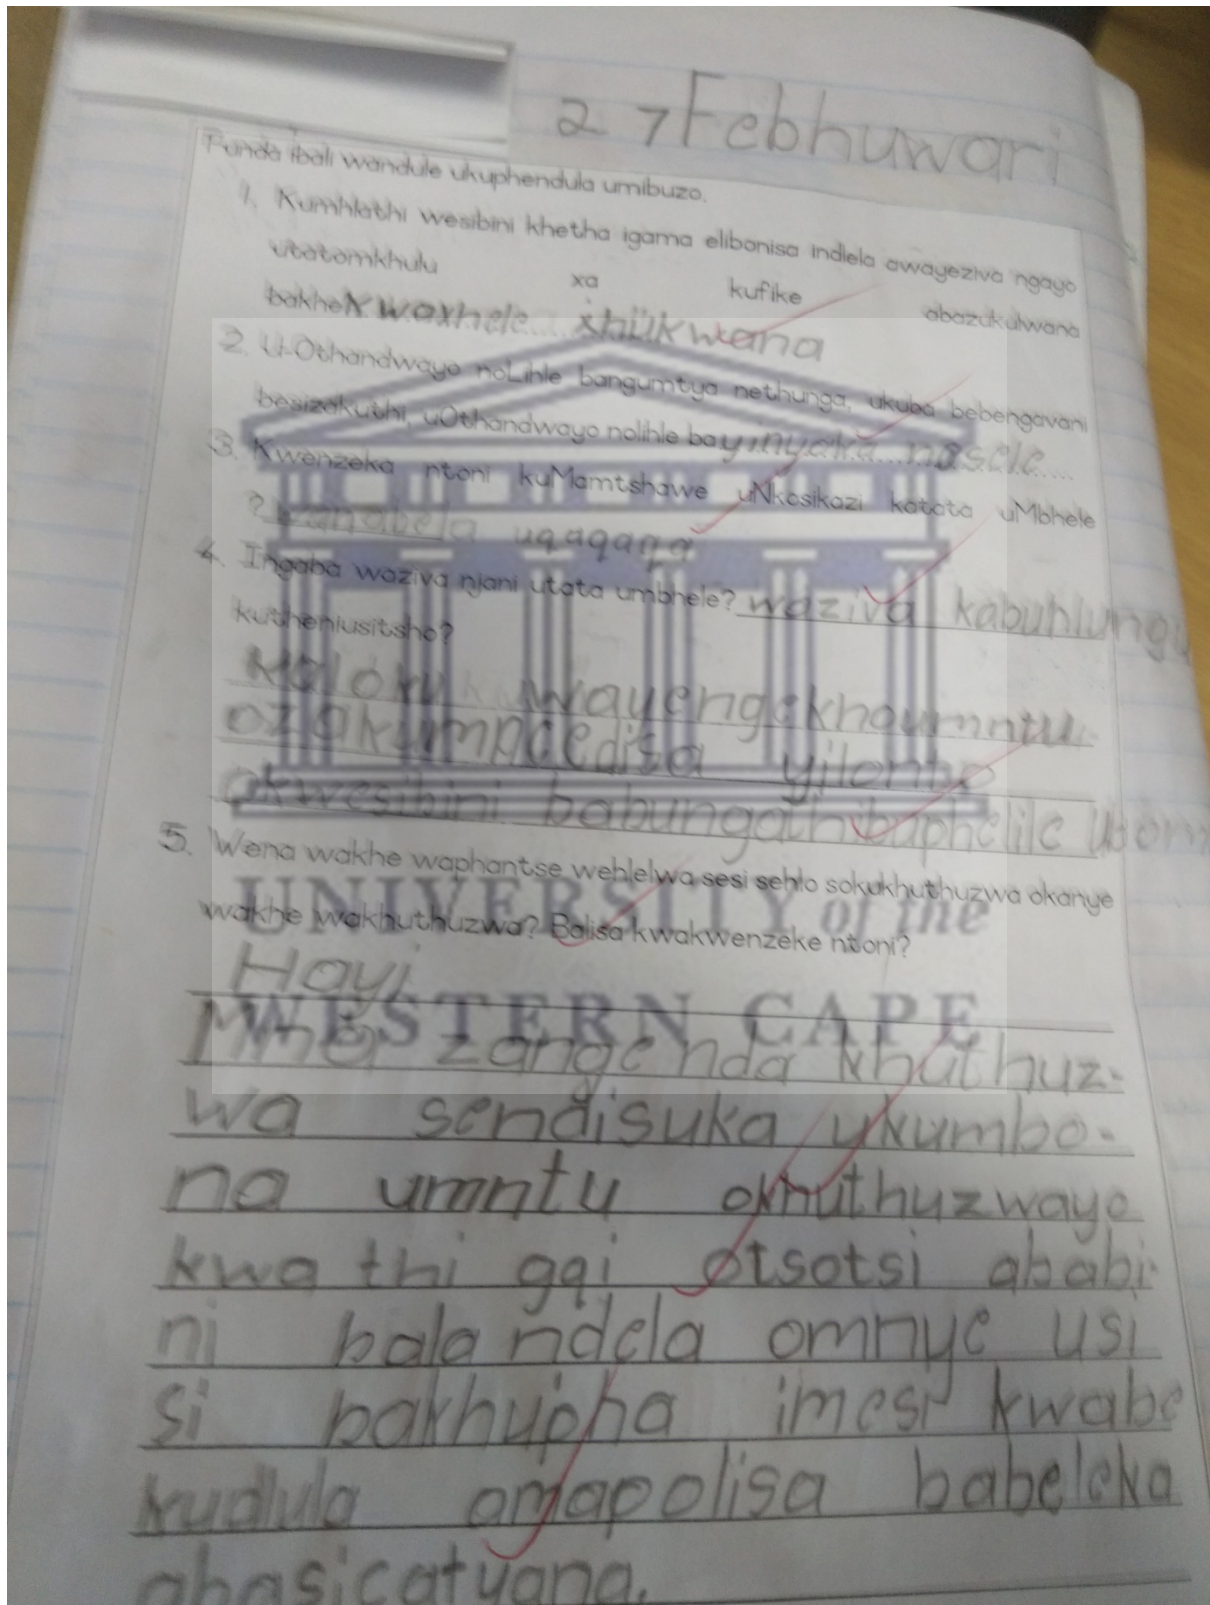 27 Febhuwari
Funda ibali wandule ukuphendula umibuzo.
1. Kumhlathi wesibini khetha igama elibonisa indlela awayeziva ngayo
utatomkhulu xa kufike abazukulwana
bakhe kwaxhele xhukwana
2. U-Othandwayo noLihle bangumtya nethunga, ukuba bebengavani
besizakuthi, uOthandwayo nolihle bayinyoka nasele
3. Kwenzeka ntoni kuMamtshawe uNkosikazi katata uMbhele
? wanabela uqaqaqa
4. Ingaba waziva njani utata umbhele? waziva kabuhlungu
kutheniusitsho?
kaloku wayengekhoumntu
ozakumncedisa yilonto
okwesibini babungathibuphelile ubom
5. Wena wakhe waphantse wehlelwa sesi sehlo sokukhuthuzwa okanye
wakhe wakhuthuzwa? Balisa kwakwenzeke ntoni?
Hayi
Mna zange nda khuthuz-
wa sendisuka ukumbo-
na umntu okhuthuzwayo
kwa thi gqi otsotsi ababi-
ni bala ndela omnye usi
si bakhupha imesi kwabe
kudlula amapolisa babeleka
abasicatyana.
UNIVERSITY of the
WESTERN CAPE